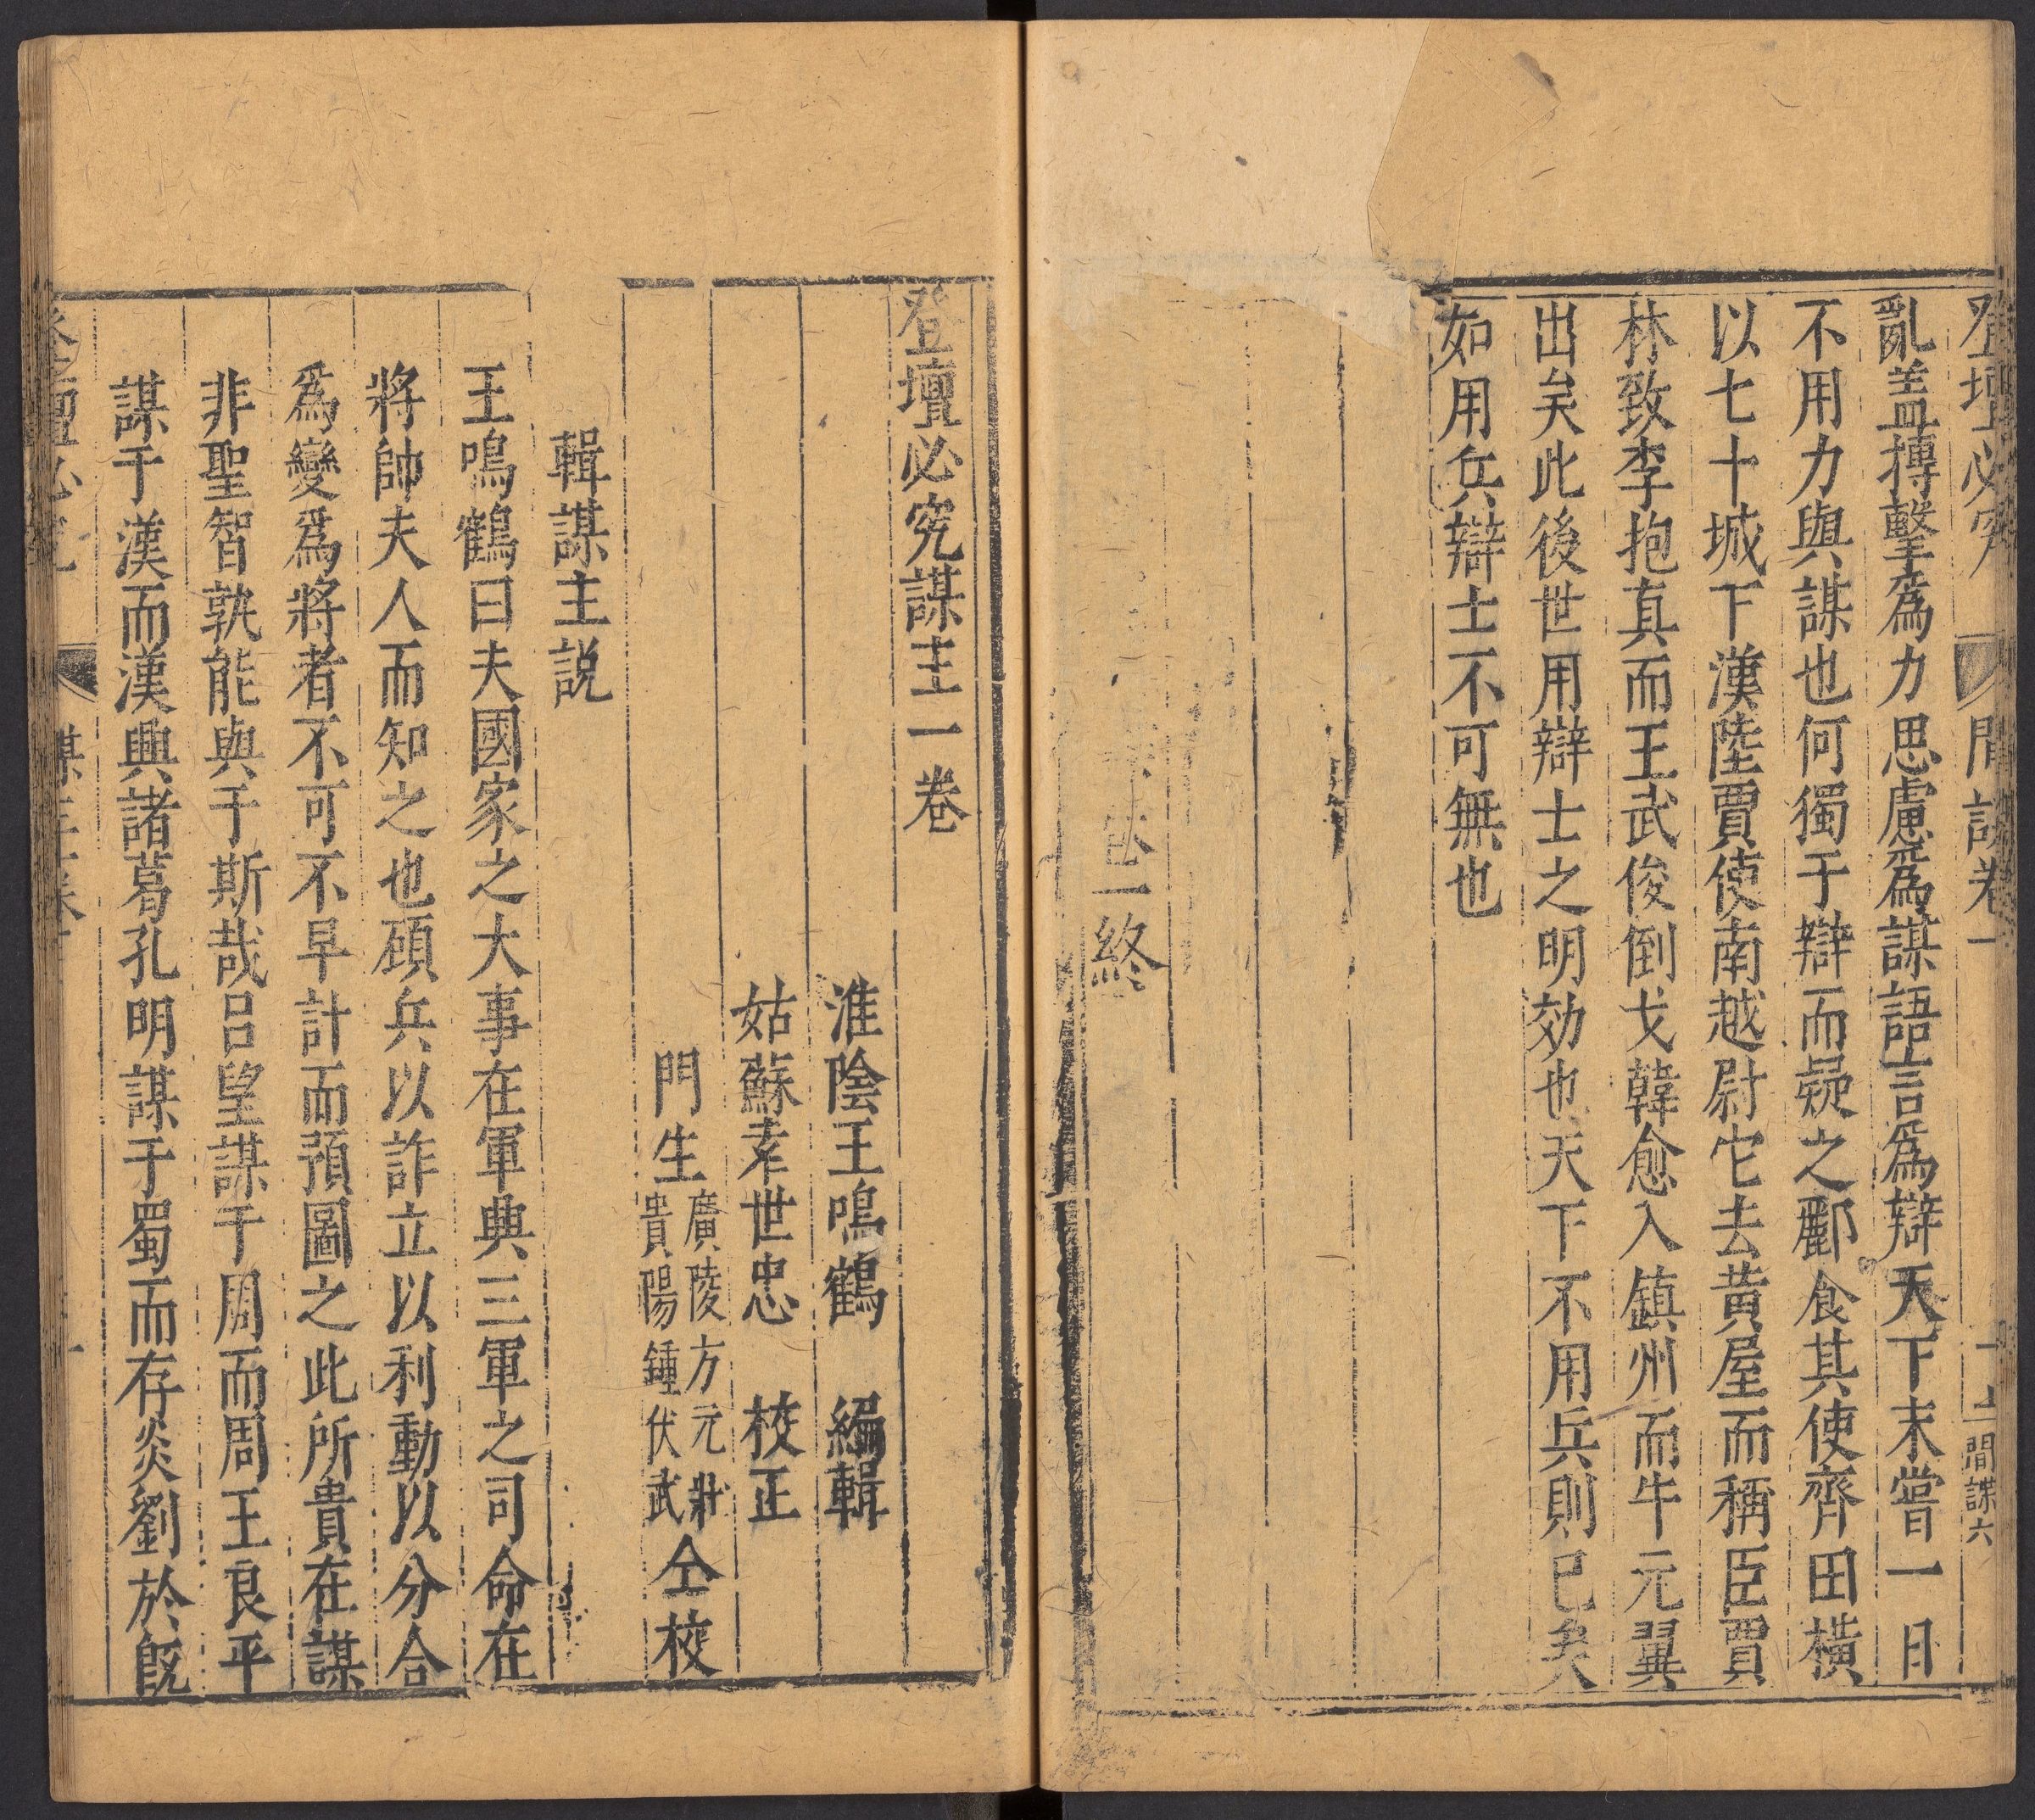 登壇必究 間諜卷一 間諜六
亂盖搏擊爲力思慮爲謀語言爲辯天下未嘗一日
不用力與謀也何獨于辯而疑之酈食其使齊田橫
以七十城下漢陸賈使南越尉它去黃屋而稱臣賈
林致李抱真而王武俊倒戈韓愈入鎮州而牛元翼
出矣此後世用辯士之明効也天下不用兵則已矣
如用兵辯士不可無也
一終
登壇必究謀主一卷
淮陰王鳴鶴 編輯
姑蘇孝世忠 校正
門生廣陵方元壯貴陽鍾伏武仝校
輯謀主説
王鳴鶴曰夫國家之大事在軍典三軍之司命在
將帥夫人而知之也碩兵以詐立以利動以分合
爲變爲將者不可不早計而預圖之此所貴在謀
非聖智孰能與于斯哉呂望謀于周而周王良平
謀于漢而漢興諸葛孔明謀于蜀而存炎劉於旣